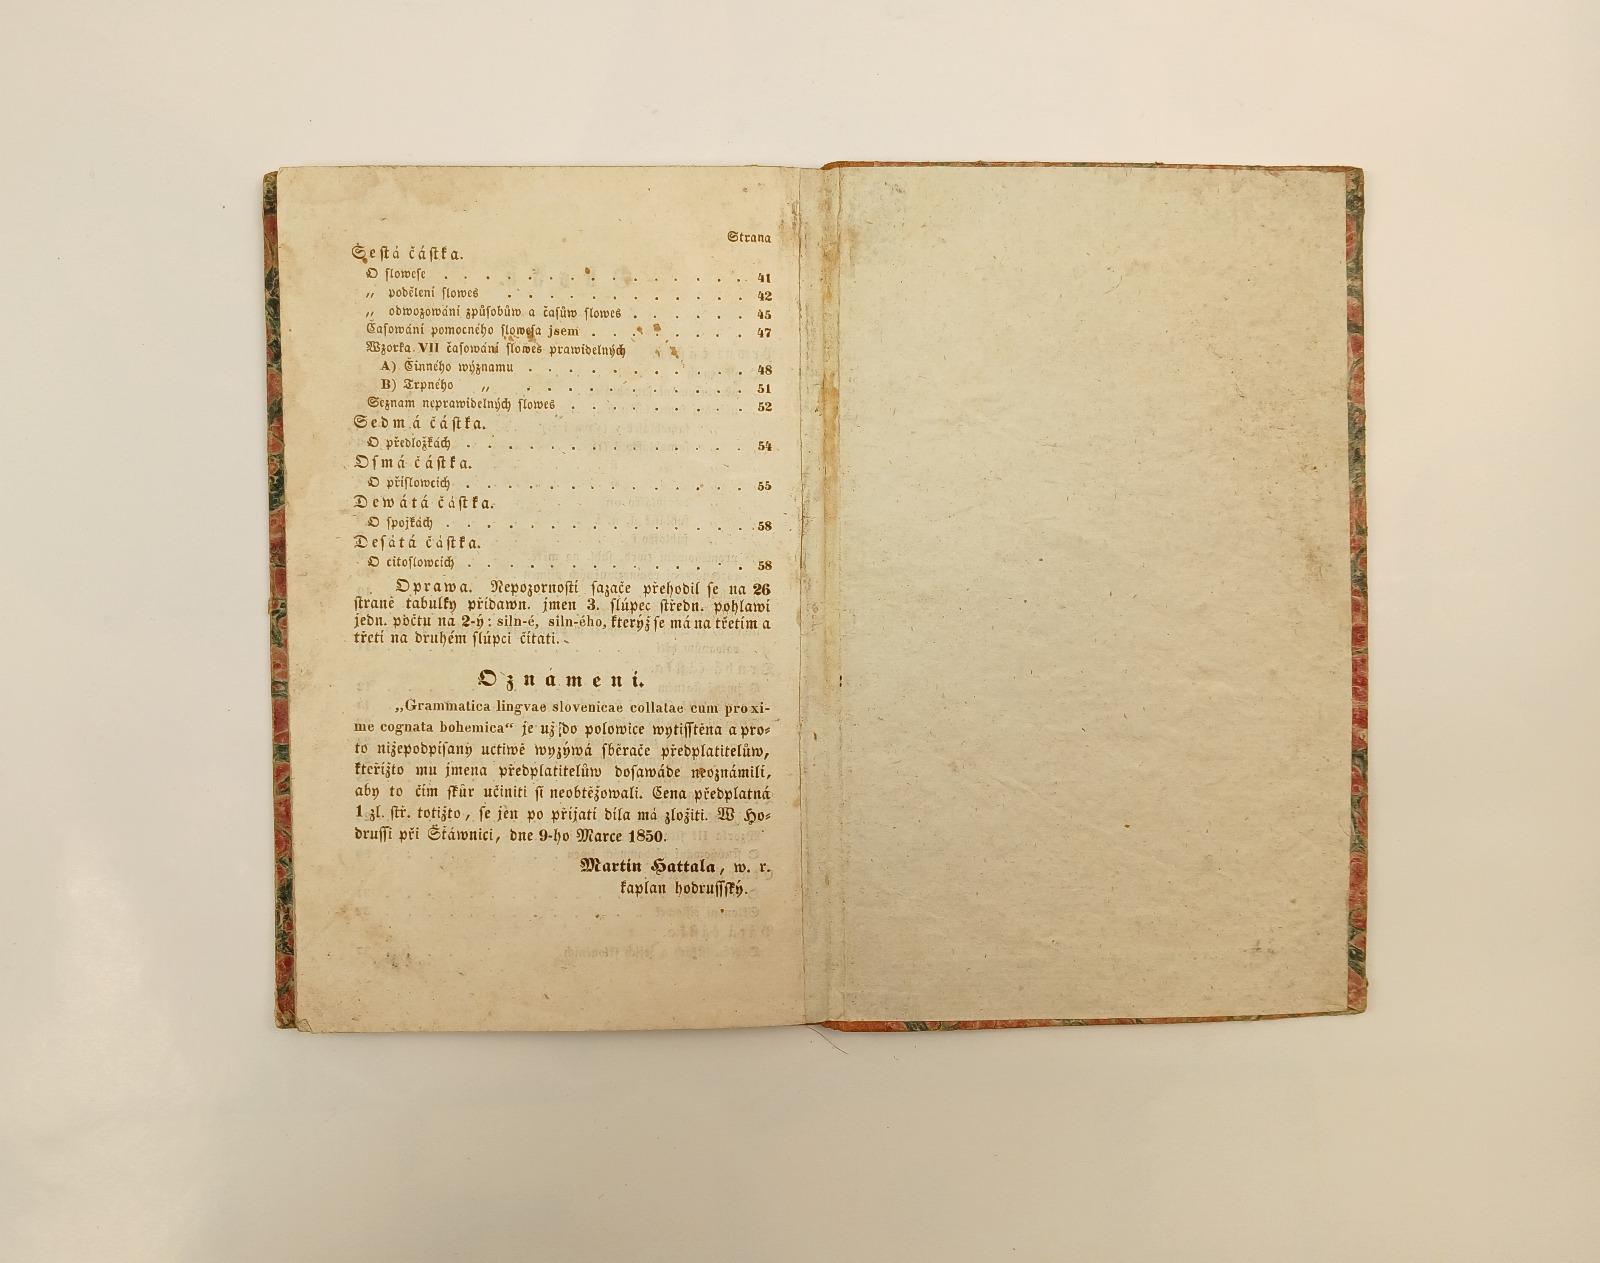 Strana
Šestá částka.
O slowese . . . . . . . . . . . . . . . 41
„ podělení slowes . . . . . . . . . . . . 42
„ odwozowání způsobůw a časůw slowes . . . . . . 45
Časowání pomocného slowesa jsem . . . . . . . . 47
Wzorka VII časowání slowes prawidelných
A) Činného wýznamu . . . . . . . . . . . 48
B) Trpného „ . . . . . . . . . . . 51
Seznam neprawidelných slowes . . . . . . . . . 52
Sedmá částka.
O předložkách . . . . . . . . . . . . . . 54
Osmá částka.
O příslowcích . . . . . . . . . . . . . . 55
Dewátá částka.
O spojkách . . . . . . . . . . . . . . . 58
Desátá částka.
O citoslowcích . . . . . . . . . . . . . . 58
Oprawa. Nepozorností sazače přehodil se na 26
straně tabulky přídawn. jmen 3. slúpec středn. pohlawí
jedn. počtu na 2-ý: siln-é, siln-ého, kterýž se má na třetím a
třetí na druhém slúpci čítati.
Oznámení.
„Grammatica lingvae slovenicae collatae cum proxi-
me cognata bohemica“ je už do polowice wytisštěna a pro-
to nížepodpísaný uctiwě wyzýwá sběrače předplatitelůw,
kteřížto mu jmena předplatitelůw dosawáde neoznámili,
aby to čím skůr učiniti si neobtěžowali. Cena předplatná
1 zl. stř. totižto, se jen po přijatí díla má zložiti. W Ho-
drussi při Štáwnici, dne 9-ho Marce 1850.
Martin Hattala, w. r.
kaplan hodrusský.